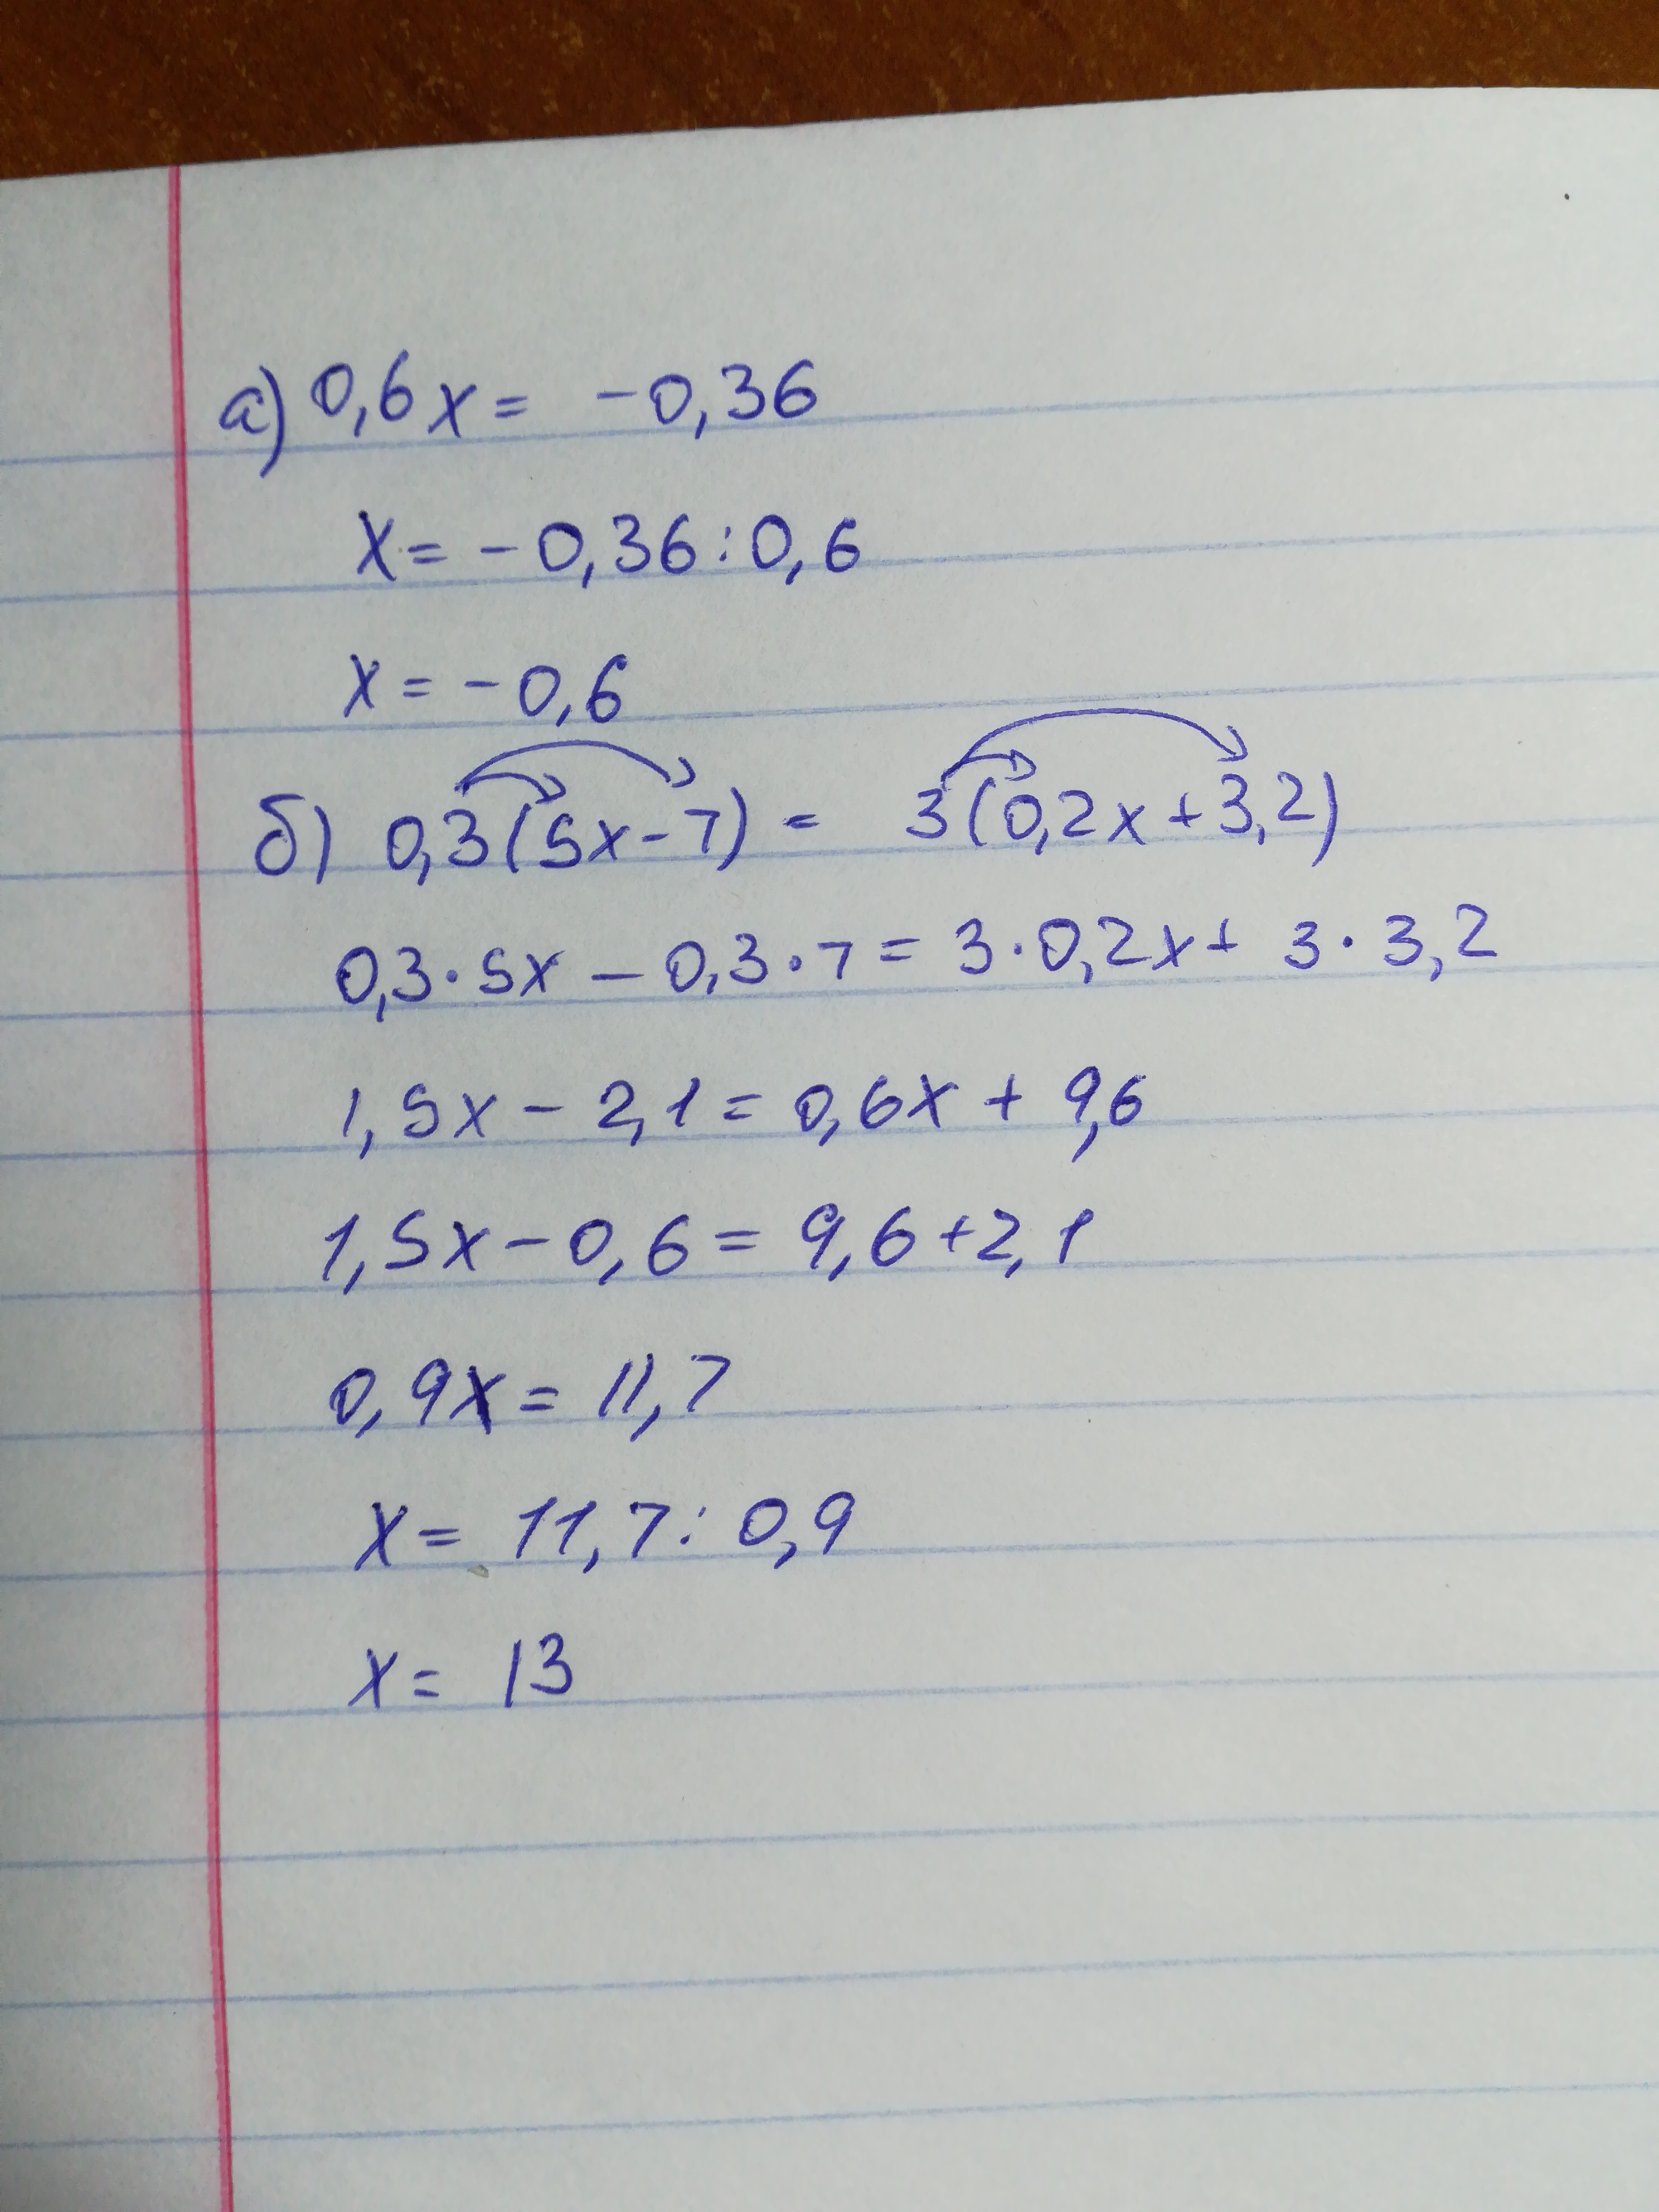 а) 0,6x = -0,36
x = -0,36 : 0,6
x = -0,6
б) 0,3(5x-7) = 3(0,2x+3,2)
0,3·5x - 0,3·7 = 3·0,2x + 3·3,2
1,5x - 2,1 = 0,6x + 9,6
1,5x - 0,6 = 9,6 + 2,1
0,9x = 11,7
x = 11,7 : 0,9
x = 13